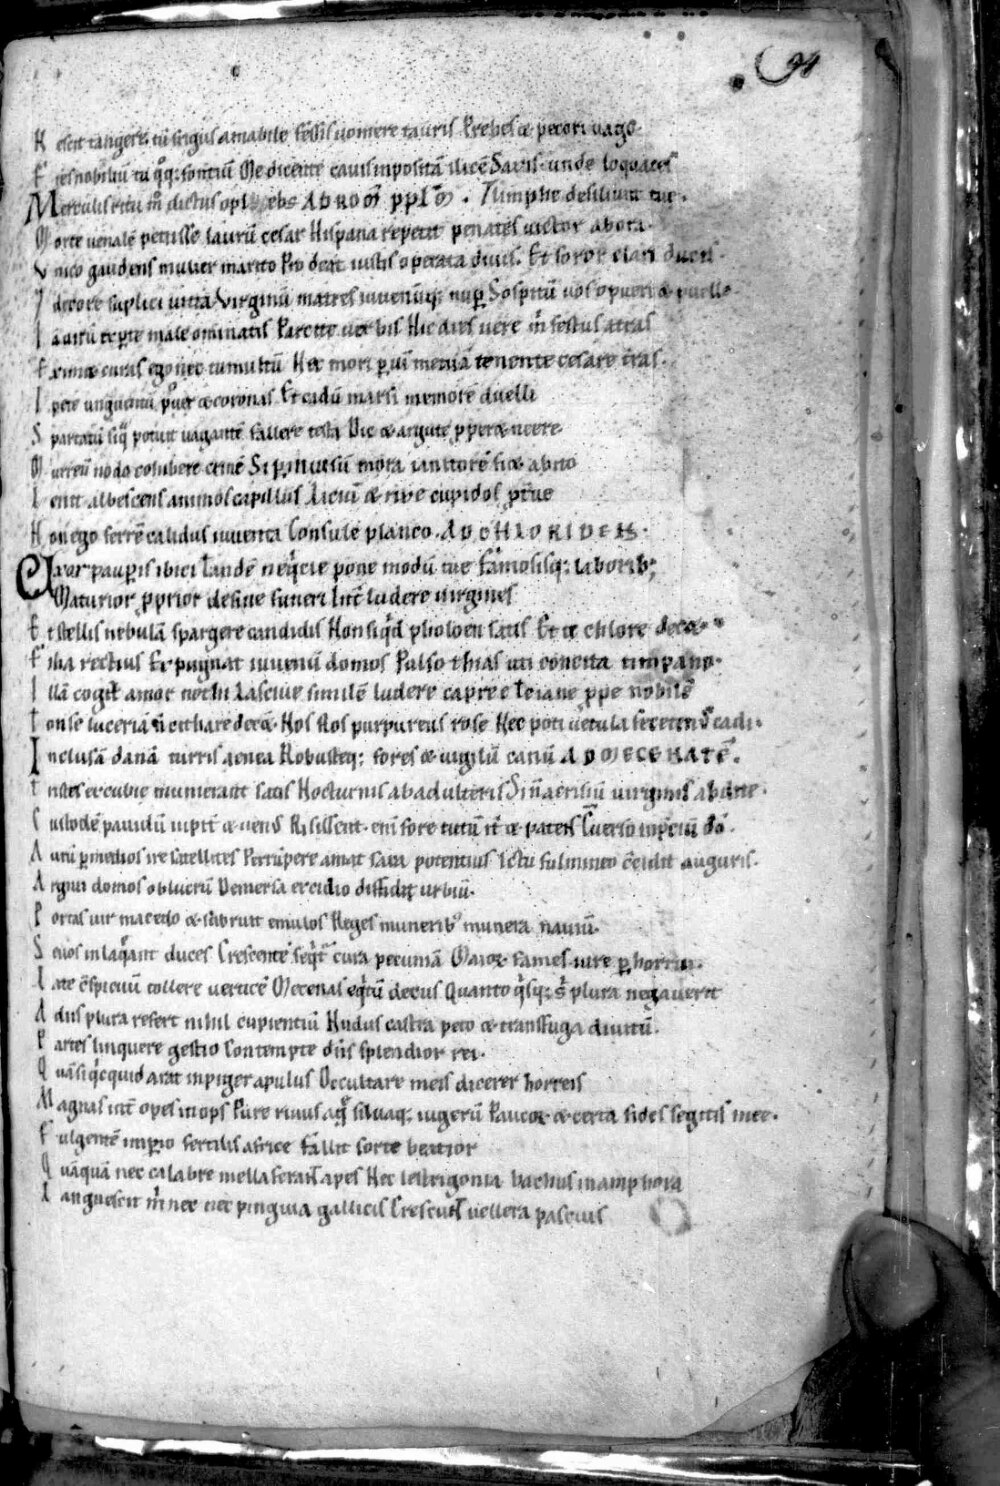 94
N escit tangere. tu frigus amabile fessis uomere tauris Prebes & pecori uago.
F ies nobiliū tu qq; fontiū Me dicente cauis inpositā ilicē Saxis. unde loquaces
M erculis ritu m̄ dictus o pl ebs AD ROM̄ PPL̄M. Nimphe desiliunt tue.
M orte uenalē petiisse laurū cesar Hispana repetit penates uictor ab ora.
V nico gaudens mulier marito Prodeat iustis operata diuis. Et soror clari ducis.
7 decore suplici uitta Virginū matres iuuenūq; nup Sospitū uos o pueri & puelle
I a uirū exꝑte male ominatis Parcite uerbis Hic dies uere m̄ festus atras
E ximet curas ego nec tumultū Nec mori p uim metuā tenente cesare t̄ras.
I pete unguentū puer & coronas Et cadū marsi memorē duelli
S partacū siq̄ potuit uagantē fallere testa Dic & argute pperet neere
M urreū nodo cohibere crinē Si p inuisū mora ianitorē fiet abito
L enit albescens animos capillus Litiū & rixe cupidos pterue
N on ego ferrē calidus iuuenta Consule planco. AD CHLORIDEN.
U xor pauꝑis ibici Tandē nequicie pone modū tue Famosisq; laborib;
Maturior pprior desine funeri Int̄ ludere uirgines
E t stellis nebulā spargere candidis Non siqd pholoen satis Et te chlore decet
F ilia rectius Expugnat iuuenū domos Pulso thias uti concita timpano.
I llā cogit amor nothi Lasciue similē ludere capree Te lane ppe nobilē
T onse luceriā n̄ cithare decēt. Nos flos purpureus rose Nec poti uetula fecetenꝰ cadi.
I nclusā danā turris aenea Robusteq; fores & uigilū canū AD MECENATĒ.
T ristes excubie munierant satis Nocturnis ab adulteris Si n̄ acrisiū uirginis abdite.
C ustodē pauidū iupit̄ & uenꝰ Risissent. enī fore tutū it̄ & patens Cuerso inpretiū do.
A urū p medios ire satellites Perrūpere amat saxa potentius Ictu fulmineo cc̄idit auguris.
A rgiui domus ob lucrū Demersa excidio diffidit urbiū.
P ortas uir macedo & subruit emulos Reges munerib; munera nauiū.
S euos inlaqant duces Crescentē seqt̄ cura pecuniā Maiorꝫ fames iure phorrui.
L ate cspicuū tollere uerticē Mecenas eqtū decus Quanto qsq; s̄ plura negauerit
A diis plura referet nihil cupientiū Nudus castra peto & transfuga diuitū.
P artes linquere gestio Contempte dn̄s splendior rei.
Q uā si qcquid arat inpiger apulus Occultare meis dicerer horreis
M agnas int̄ opes inops Pure riuus aq̄ siluaq; iugerū Paucorꝫ & certa fides segetis mee.
F ulgentē inꝑio fertilis africe Fallit sorte beatior
Q uāquā nec calabre mella ferant apes Nec lestrigonia bachus in amphora
L anguescit m̄ nec nec pinguia gallicis Crescunt uellera pascuis